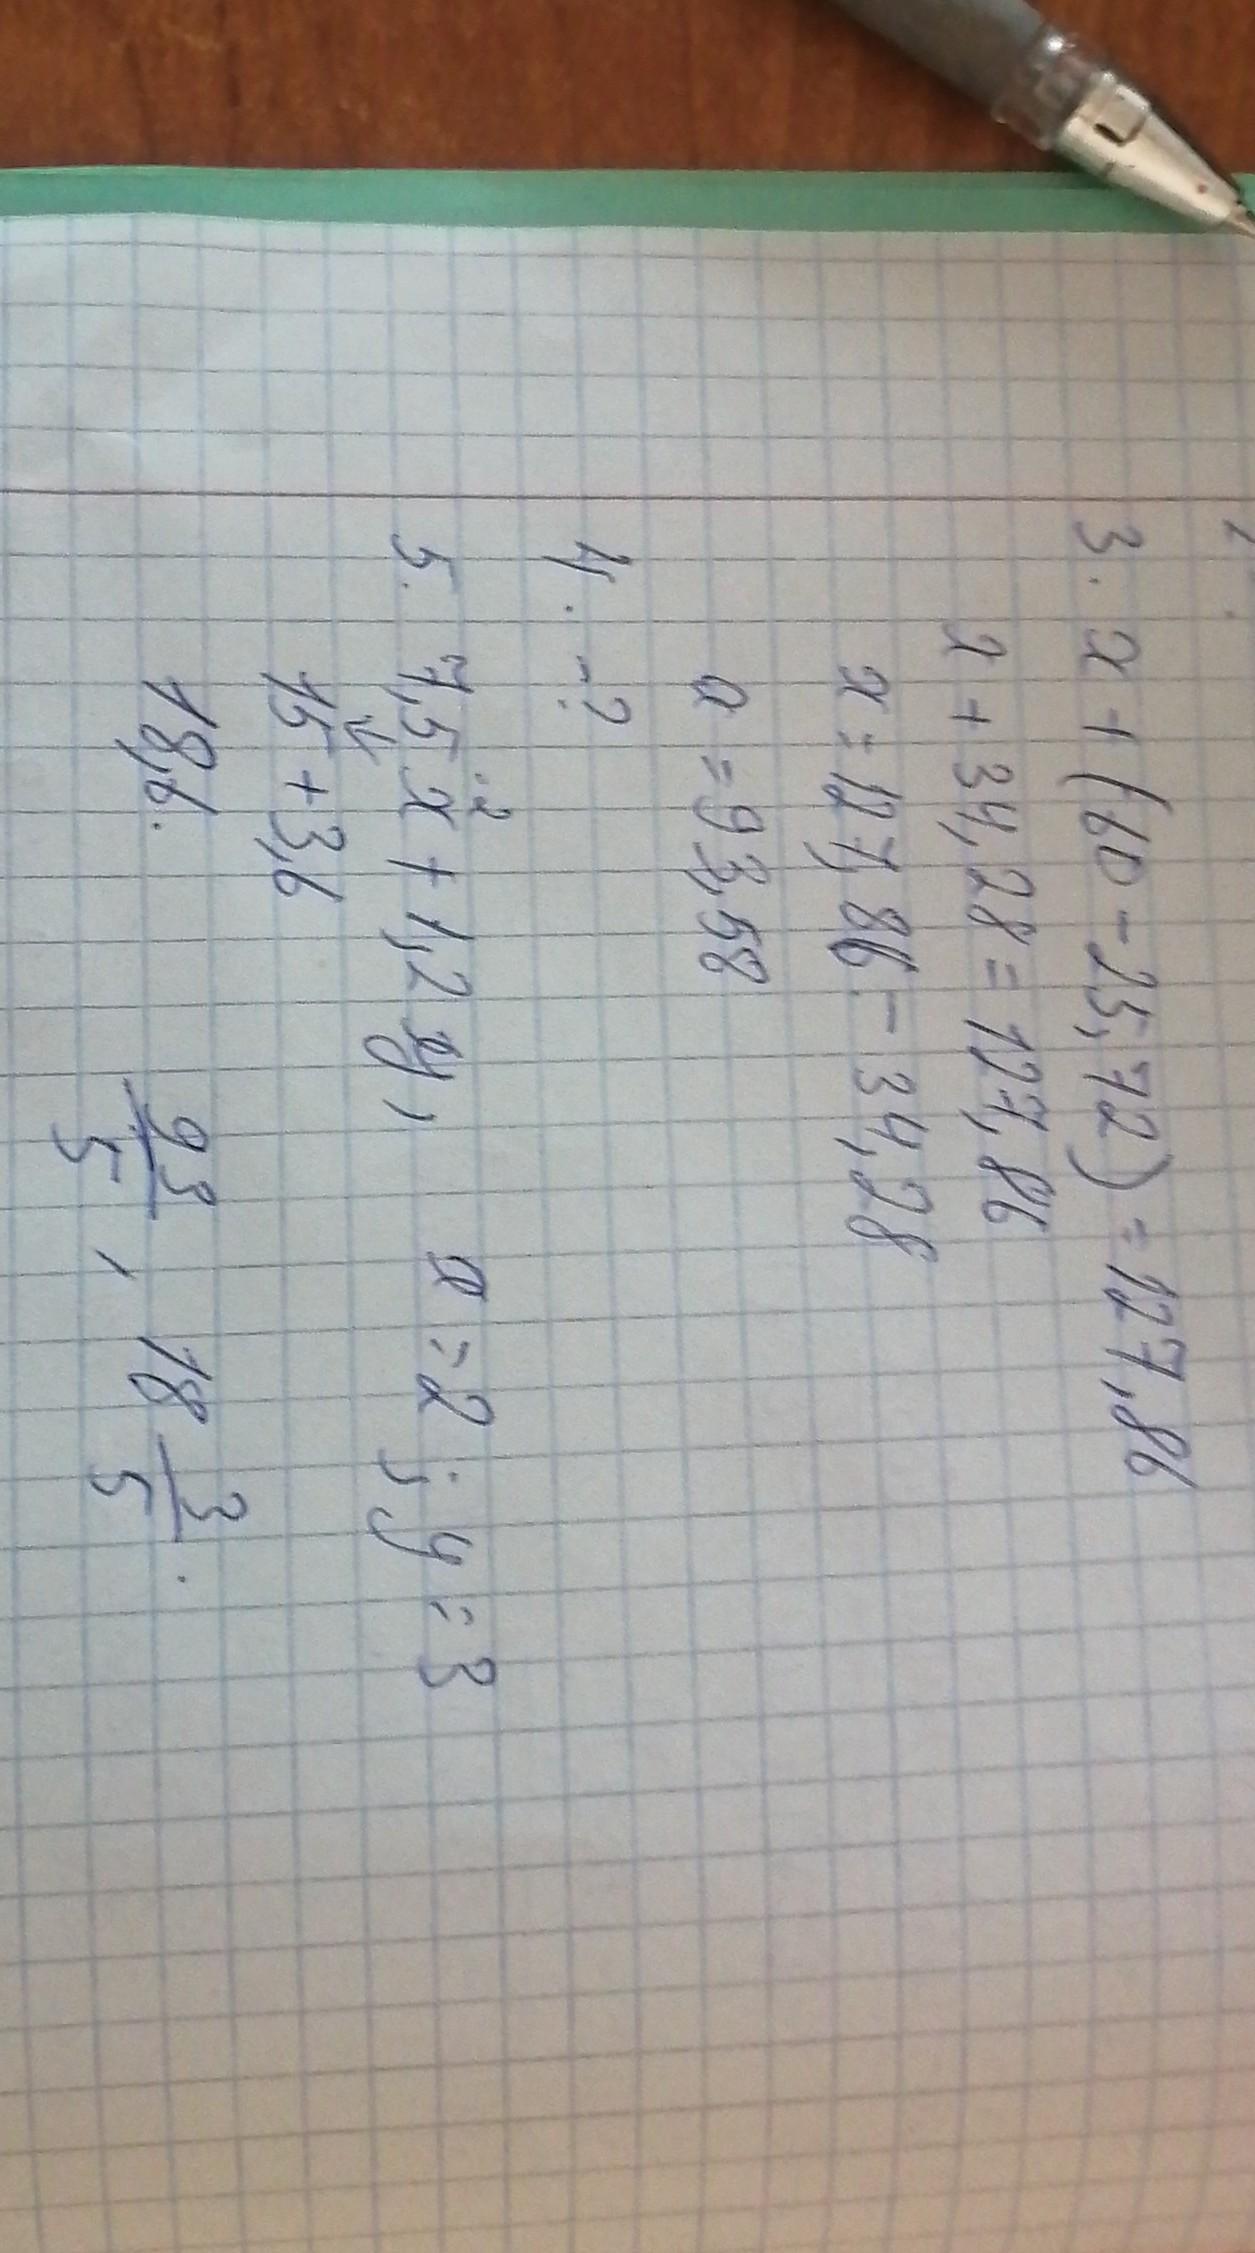 3. x + (60 - 25,72) = 127,86
x + 34,28 = 127,86
x = 127,86 - 34,28
x = 93,58
4. -?
5. 7,5 x + 1,2 y, x = 2; y = 3
15 + 3,6
18,6. 93/5, 18 3/5.